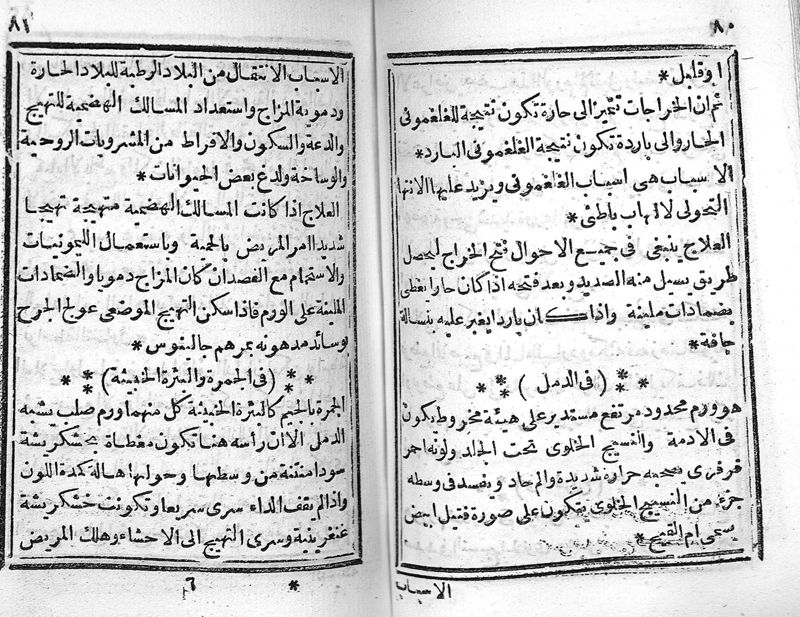 ٨٠
او قليل *
ثم ان الخراجات تتميز الى حارة تكون نتيجة للغلغمونى
الحار والى باردة تكون نتيجة الغلغمونى البارد *
الاسباب هى اسباب الغلغمونى ويزيد عليها الانتها
التحولى لالتهاب باطنى *
العلاج ينبغى فى جميع الاحوال فتح الخراج ليحصل
طريق يسيل منه الصديد وبعد فتحه اذا كان حارا يغطى
بضمادات ملينة واذا كان باردا يغير عليه بنسالة
جافة *
* * * ( فى الدمل ) * * *
هو ورم محدود مرتفع مستدير على هيئة مخروط يكون
فى الادمة والنسيج الخلوى تحت الجلد ولونه احمر
فرفرى يصحبه حرارة شديدة والم حاد ويفسد فى وسطه
جزء من النسيج الخلوى يتكون على صورة فتيل ابيض
يسمى ام القيح *
الاسباب
٨١
الاسباب الانتقال من البلاد الرطبة للبلاد الحارة
ودموية المزاج واستعداد المسالك الهضمية للتهيج
والدعة والسكون والافراط من المشروبات الروحية
والوساخة ولدغ بعض الحيوانات *
العلاج اذا كانت المسالك الهضمية متهيجة تهيجا
شديدا امر المريض بالحمية وباستعمال الليمونيات
والاستحمام مع الفصد ان كان المزاج دمويا والضمادات
الملينة على الورم فاذا سكن التهيج الموضعى عولج الجرح
بوسائد مدهونة بمرهم جالينوس *
* * * ( فى الجمرة والبثرة الخبيثة ) * * *
الجمرة بالجيم كالبثرة الخبيثة كل منهما ورم صلب يشبه
الدمل الا ان راسه هنا تكون مغطاة بخشكريشة
سودا منتنة من وسطها وحولها هالة كمدة اللون
واذا لم يقف الداء سرى سريعا وتكونت خشكريشة
غنغرينية وسرى التهيج الى الاحشاء وهلك المريض
* ٦